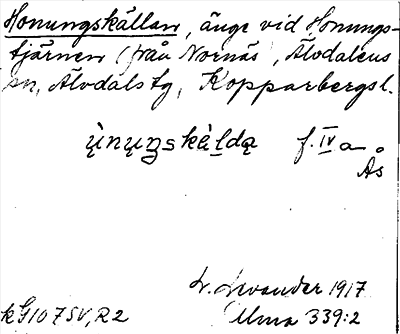 Honungskällan, änge vid Honungs-
tjärnen (från Nornäs), Älvdalens
sn, Älvdalstg, Kopparbergsl.
ų̀nųŋskä̀ldą f. IV a
Ås
L. Levander 1917
kG107SV, R2 Ulma 339:2